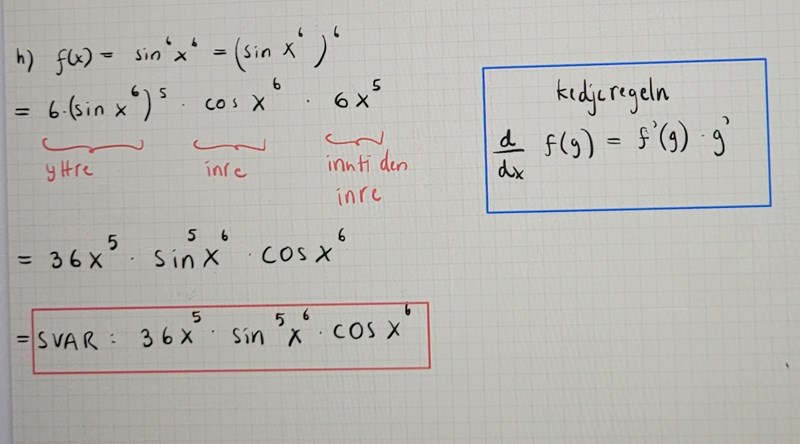 h) f(x) = sin⁶x⁶ = (sin x⁶)⁶
= 6·(sin x⁶)⁵ · cos x⁶ · 6x⁵
yttre inre innti den
inre
= 36x⁵ · sin⁵x⁶ · cos x⁶
= SVAR : 36x⁵ · sin⁵x⁶ · cos x⁶
kedjeregeln
d/dx f(g) = f'(g) · g'